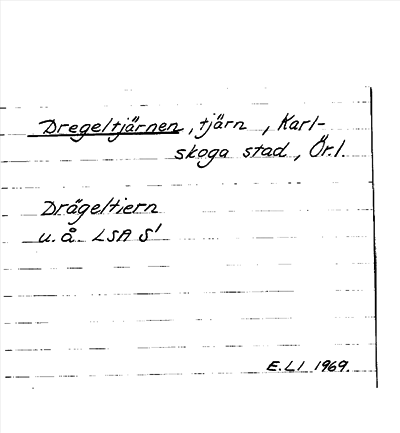 Dregeltjärnen, tjärn, Karl-
skoga stad, Ör.l.
Drägeltiern
u.å. LSA S'
E.LI 1969.